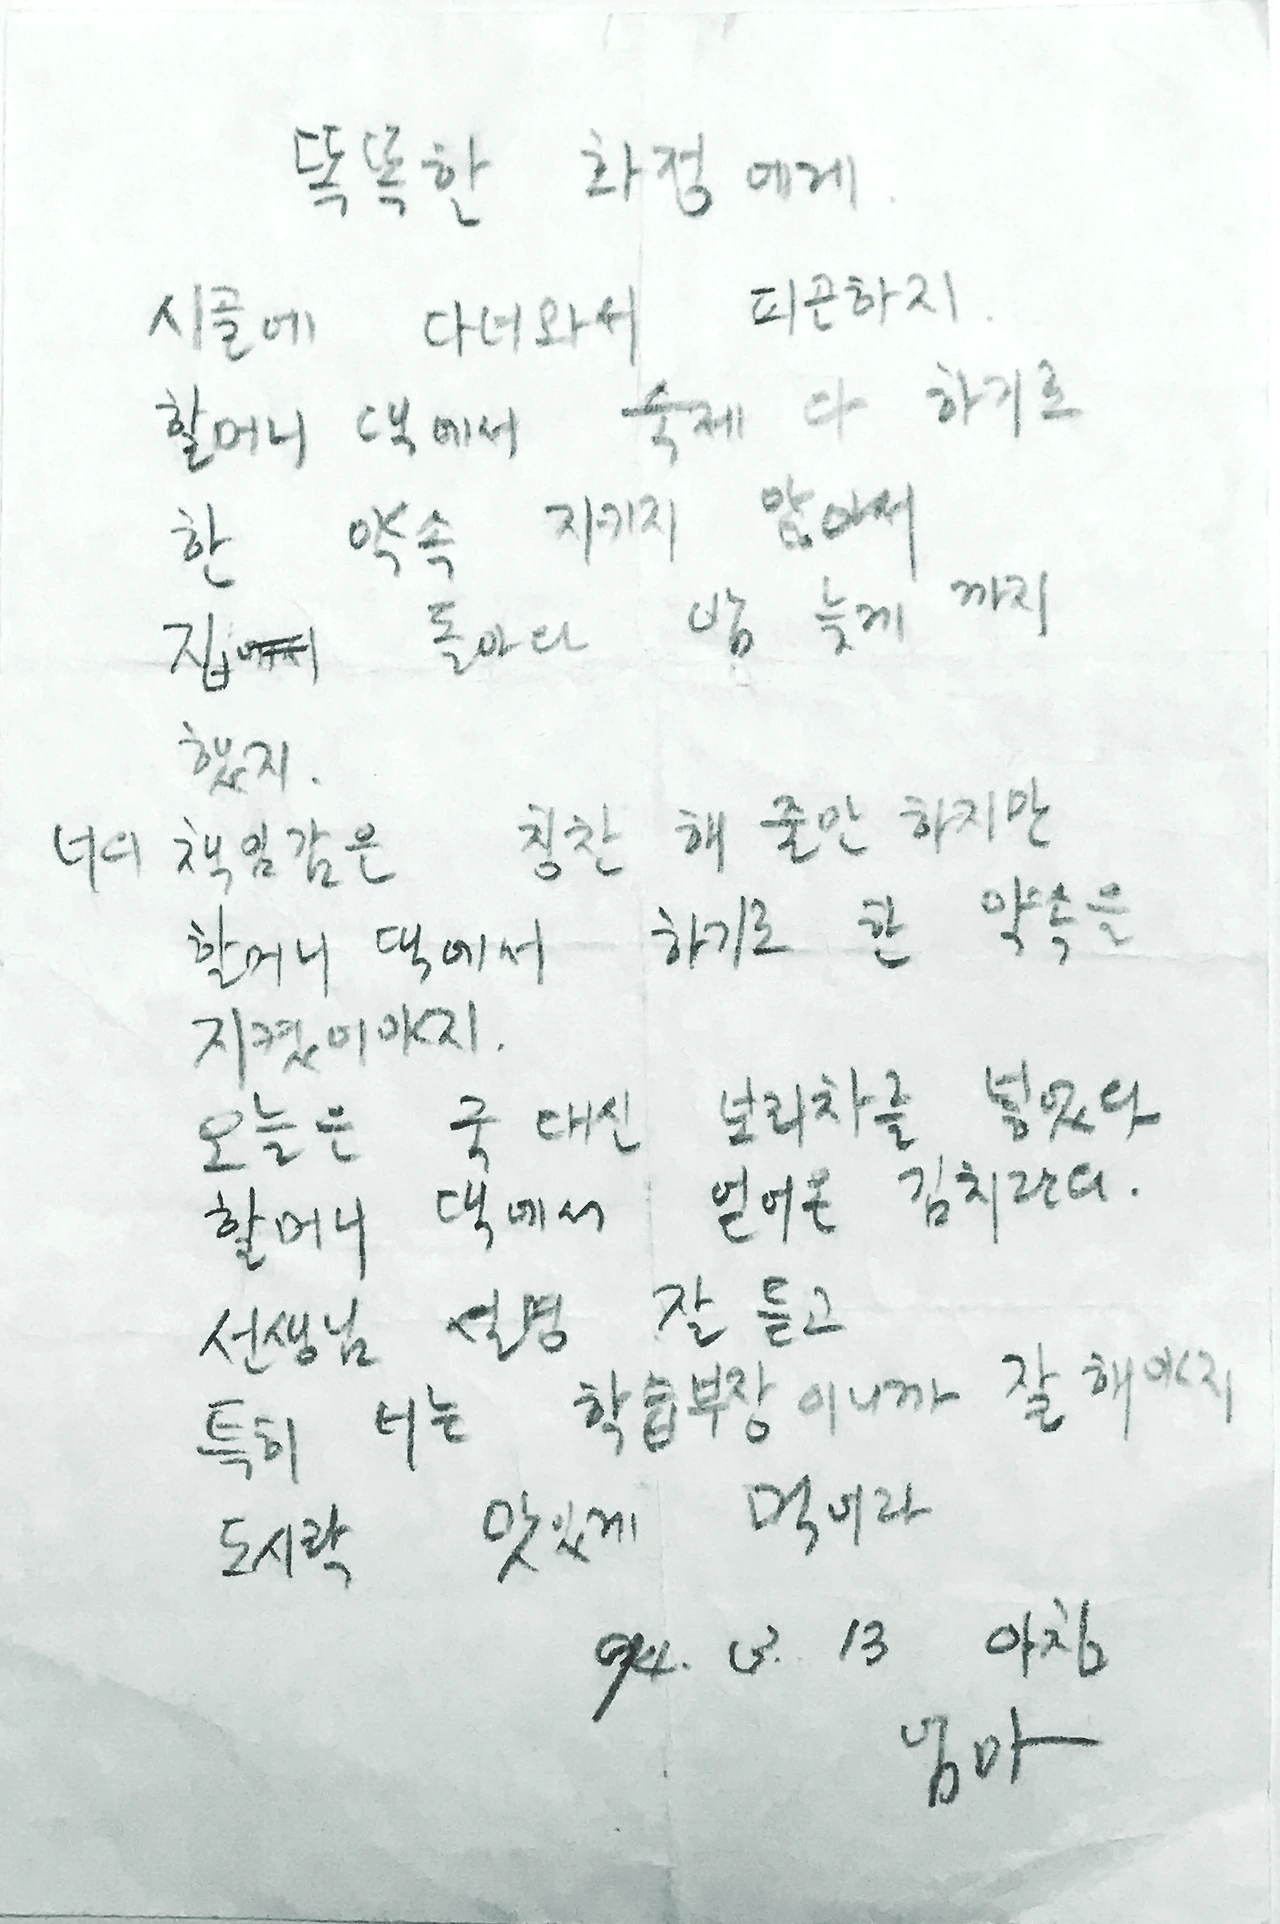 똑똑한 화정에게.
시골에 다녀와서 피곤하지.
할머니 댁에서 숙제 다 하기로
한 약속 지키지 않아서
집에 돌아와 밤 늦게 까지
했지.
너의 책임감은 칭찬 해 줄만 하지만
할머니 댁에서 하기로 한 약속을
지켰어야지.
오늘은 국 대신 보리차를 넣었다
할머니 댁에서 얻어온 김치란다.
선생님 설명 잘 듣고
특히 너는 학습부장이니까 잘 해야지
도시락 맛있게 먹어라
94. 13 아침
엄마